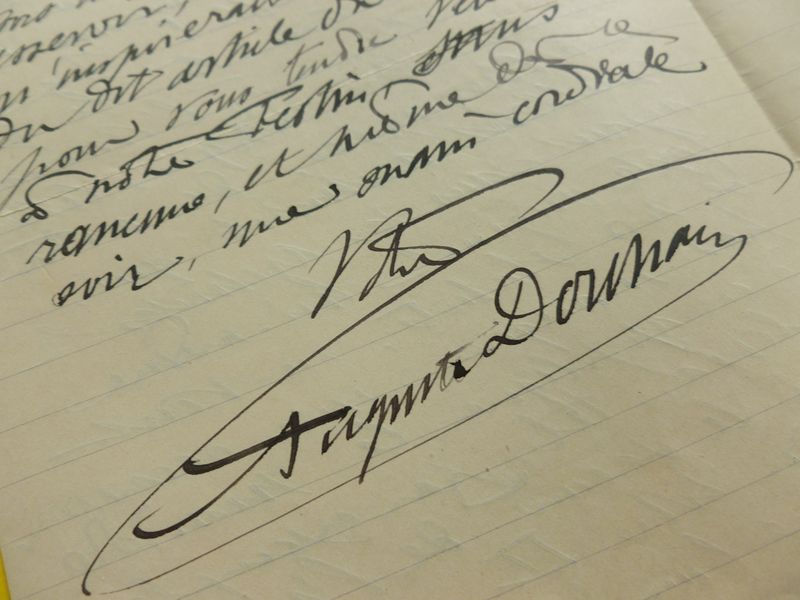 inspirerai
du dit article du
pour vous tendre
à notre festin, sans
rancune, et même de le
voir, une main cordiale
Votre
Auguste Dorchain